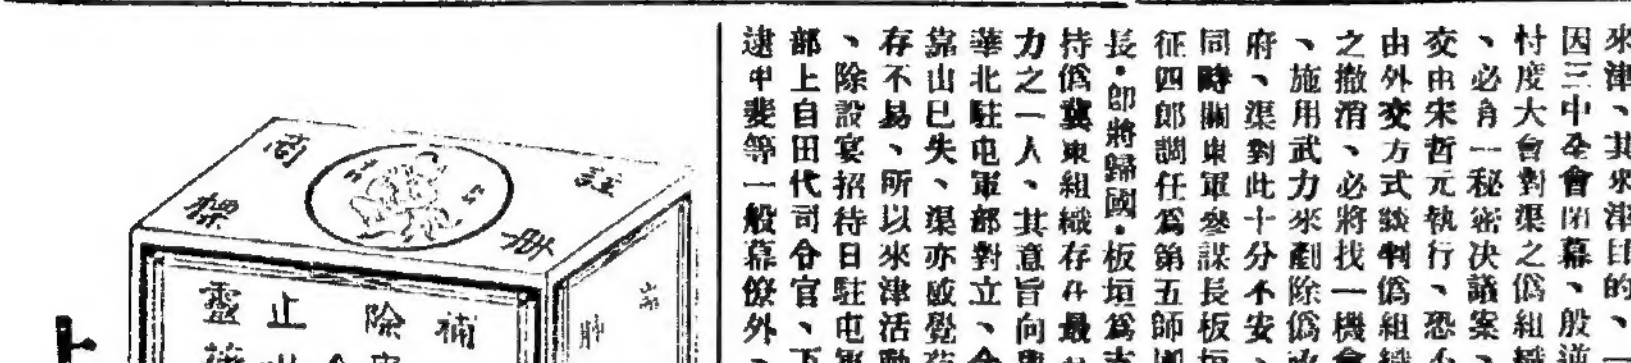 來津、其來津目的、一
因三中全會閉幕、殷逆
忖度大會對渠之僞組織
、必有一秘密决議案、
交由宋哲元執行、恐不
由外交方式談判僞組織
之撤消、必將找一機會
、施用武力來剷除僞政
府、渠對此十分不安、
同時關東軍參謀長板垣
征四郎調任爲第五師團
長・卽將歸國・板垣爲支
持僞冀東組織存在最
力之一人、其意旨向與
華北駐屯軍部對立、今
靠山已失、渠亦感覺
存不易、所以來津活動
、除設宴招待日駐屯軍
部上自田代司令官、下
逮甲斐等一般幕僚外、
註册商標
補
除
止
靈
肺